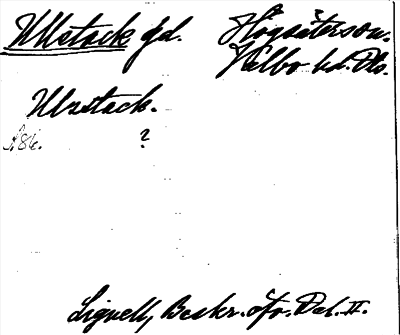 Ullstack gd. Högsäterson.
Valbo hd. Dls.
Ulvstack.
A 86. ?
Lignell, Beskr. öfv. Dal. II.